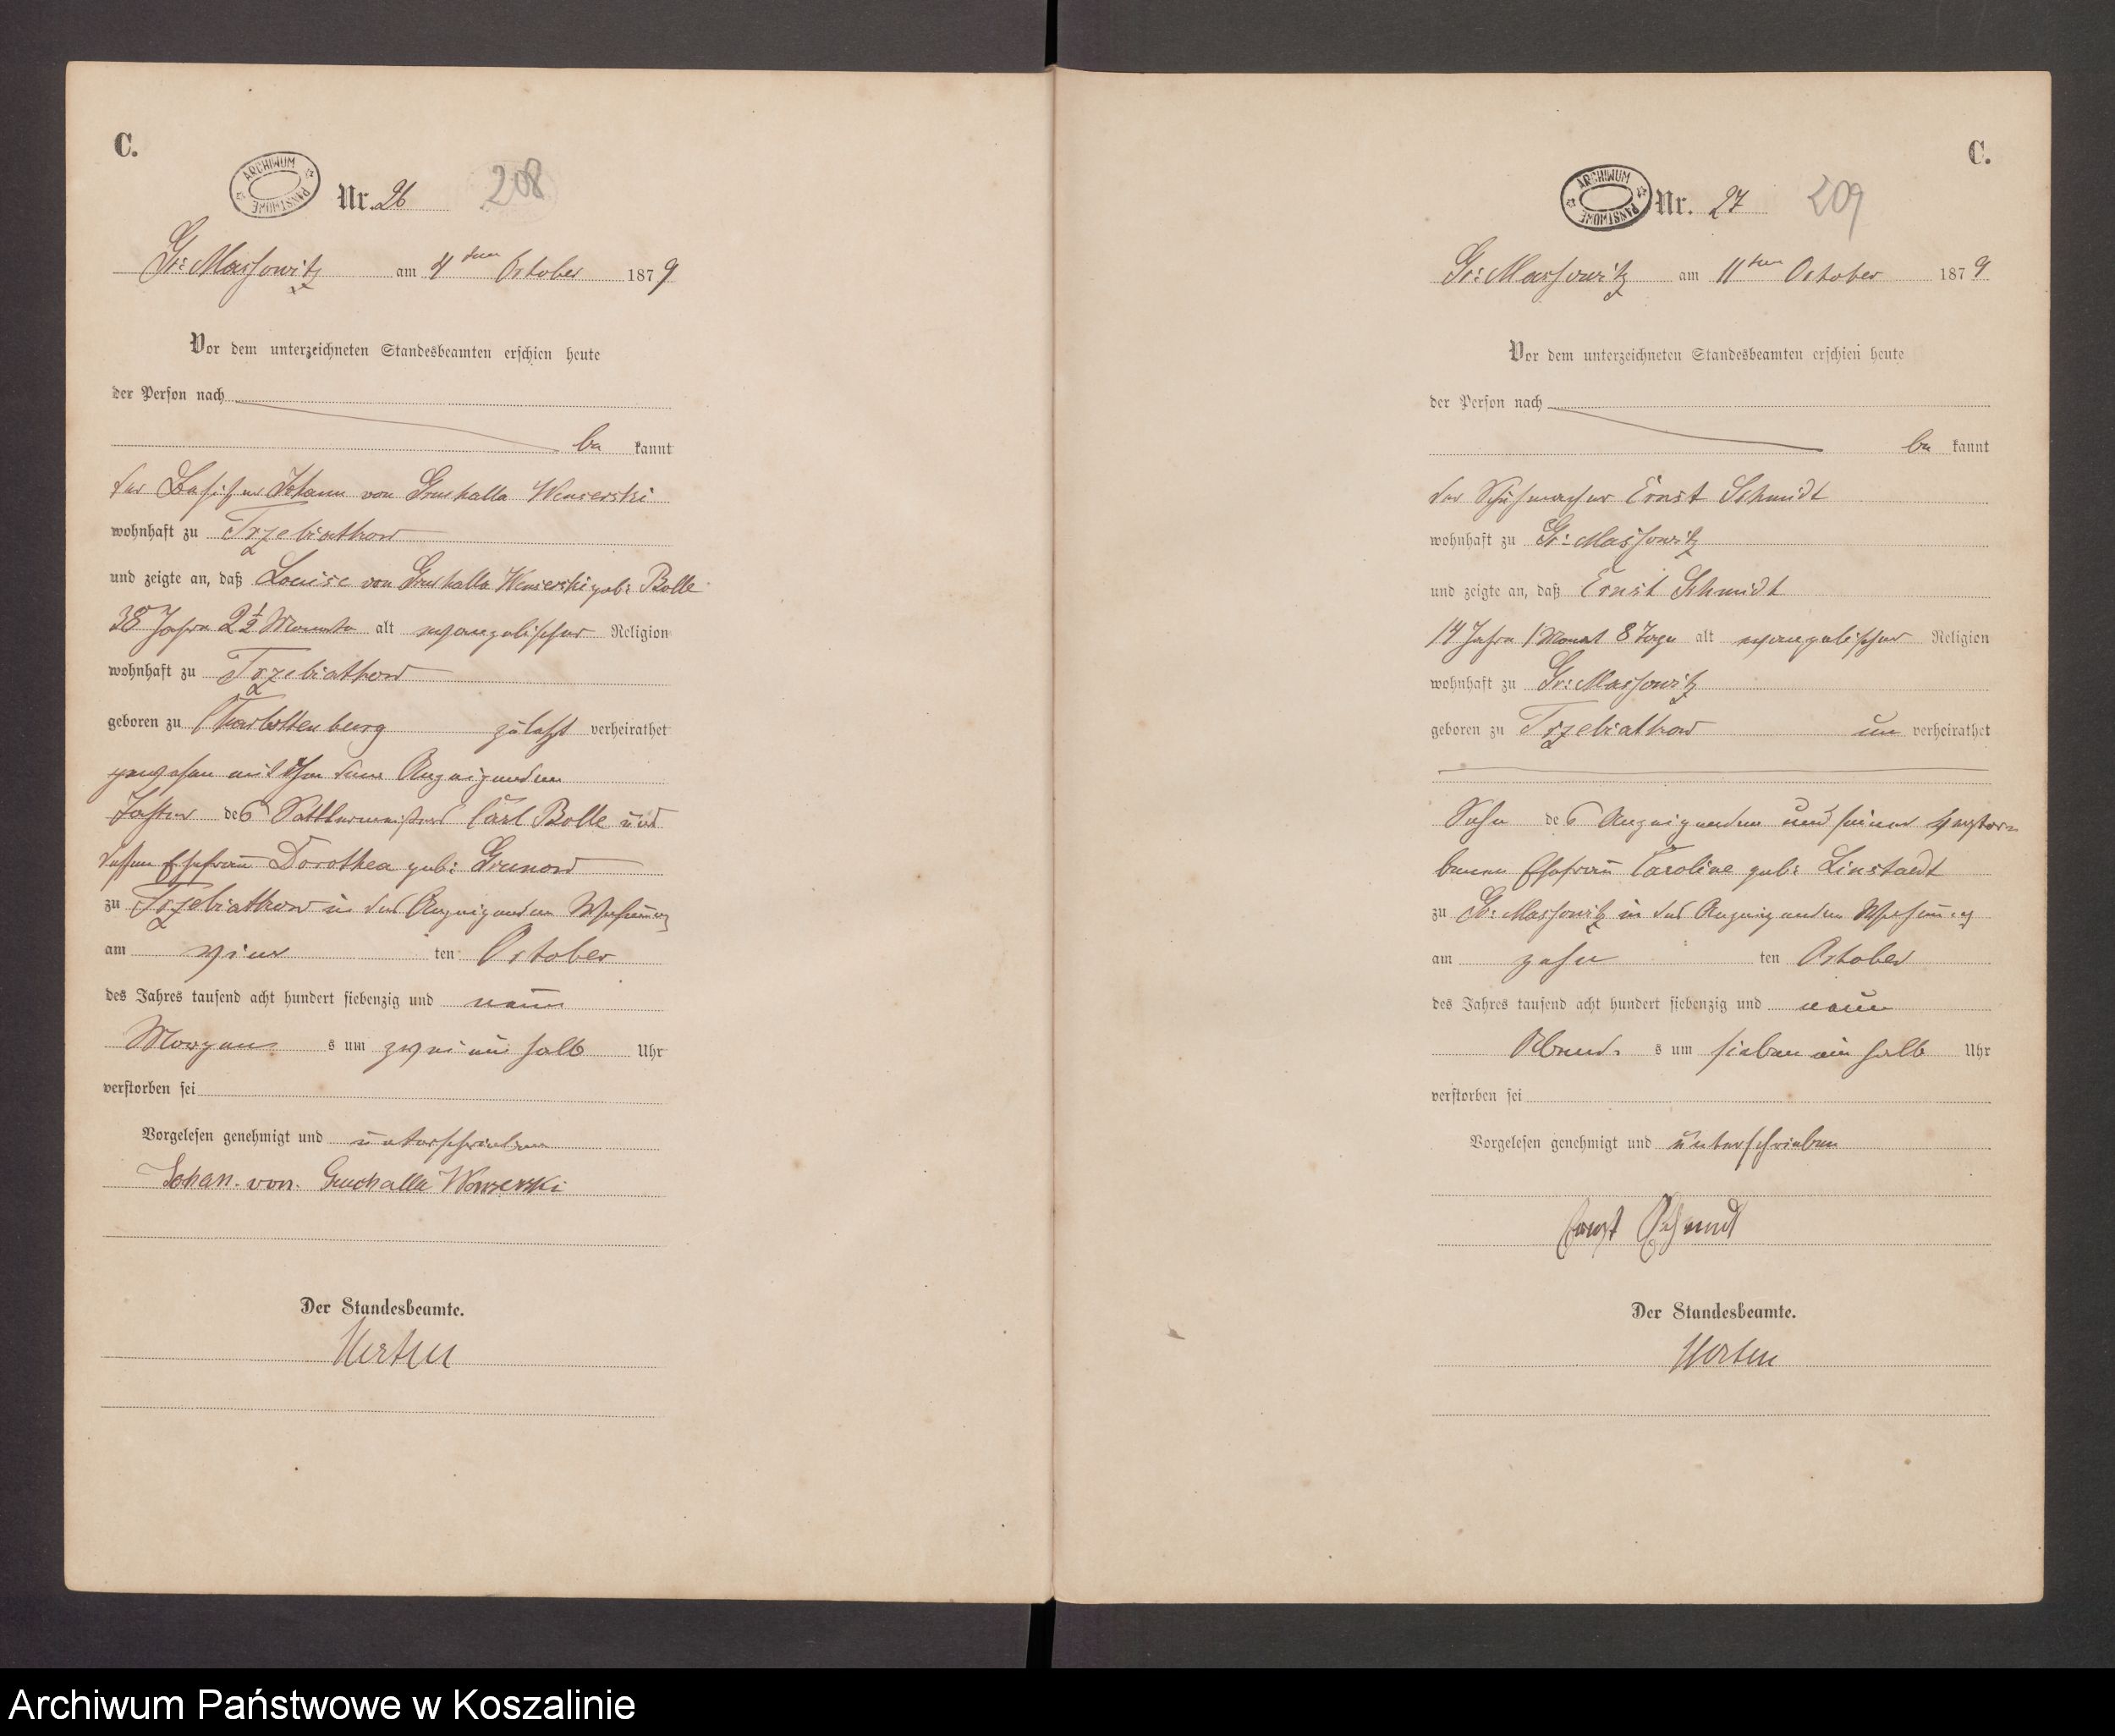 C.
ARCHIWUM PAŃSTWOWE
Nr. 26
208
Gr: Massowitz am 4ten October 1879
Vor dem unterzeichneten Standesbeamten erschien heute
der Person nach
be kannt
der Besitzer Johann von Gruchalla Wenserski
wohnhaft zu Trzebiatkow
und zeigte an, daß Louise von Gruchalla Wenserski geb: Bolle
38 Jahre 2½ Monate alt evangelischer Religion
wohnhaft zu Trzebiatkow
geboren zu Charlottenburg zuletzt verheirathet
gewesen mit ihm dem Anzeigenden
Tochter des Sattlermeisters Carl Bolle und
dessen Ehefrau Dorothea geb: Grunow
zu Trzebiatkow in des Anzeigenden Wohnung
am vier ten October
des Jahres tausend acht hundert siebenzig und neun
Morgens s um zwei ein halb Uhr
verstorben sei
Vorgelesen genehmigt und unterschrieben
Johan. von. Gruchalla Wenserski
Der Standesbeamte.
C.
ARCHIWUM PAŃSTWOWE
Nr. 27
209
Gr: Massowitz am 11ten October 1879
Vor dem unterzeichneten Standesbeamten erschien heute
der Person nach
be kannt
der Schuhmacher Ernst Schmidt
wohnhaft zu Gr: Massowitz
und zeigte an, daß Ernst Schmidt
14 Jahre 1 Monat 8 Tage alt evangelischer Religion
wohnhaft zu Gr: Massowitz
geboren zu Trzebiatkow un verheirathet
Sohn des Anzeigenden und seiner verstor-
benen Ehefrau Caroline geb: Linstaedt
zu Gr: Massowitz in des Anzeigenden Wohnung
am zehn ten October
des Jahres tausend acht hundert siebenzig und neun
Abend s um sieben ein halb Uhr
verstorben sei
Vorgelesen genehmigt und unterschrieben
Ernst Schmidt
Der Standesbeamte.
Archiwum Państwowe w Koszalinie